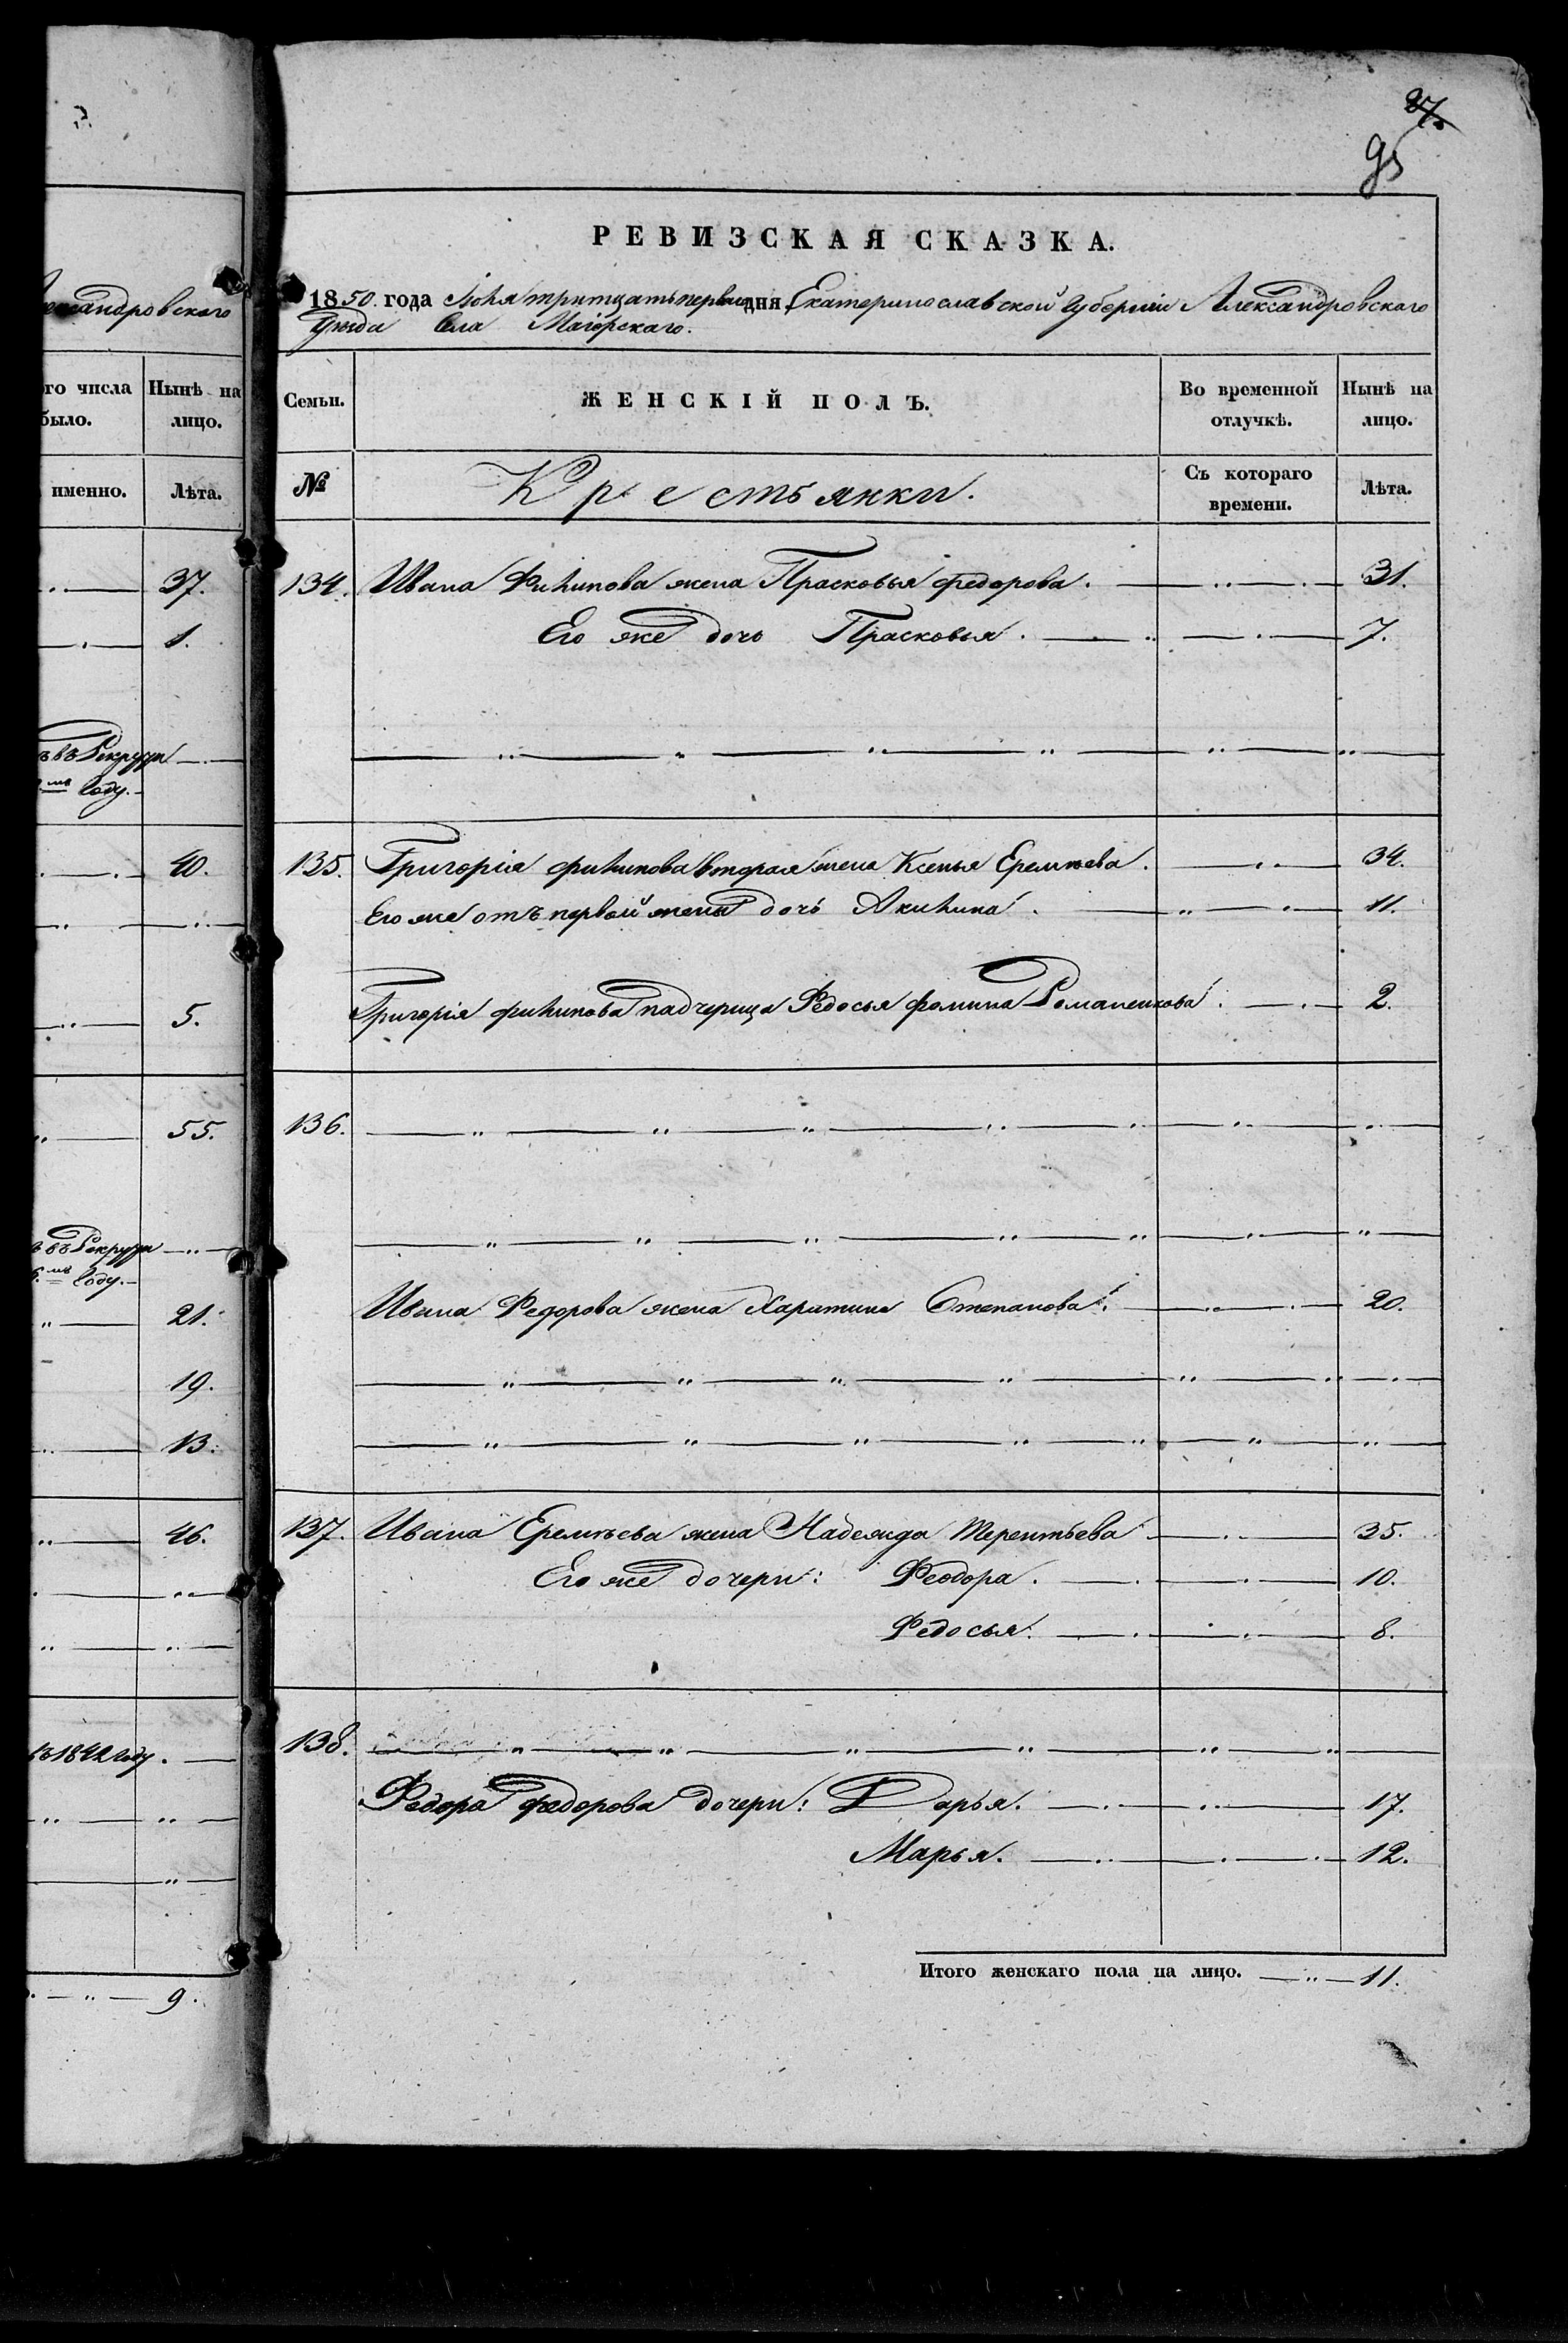 лександровскаго
ого числа
было.
Нынѣ на
лицо.
именно.
Лѣта.
37.
1.
ъ въ Рекруты
мъ Году.
40.
5.
55.
ъ въ Рекруты
6.мъ Году.
21.
19.
13.
46.
въ 1842 году.
9.
27.
95
РЕВИЗСКАЯ СКАЗКА.
1850. года Іюля тритцать первого дня, Екатеринославской Губерніи Александровскаго
Уѣзда Села Маіорскаго.
Семьи. ЖЕНСКІЙ ПОЛЪ. Во временной отлучкѣ. Нынѣ на лицо.
№ Крестьянки. Съ котораго времени. Лѣта.
134. Ивана Филипова жена Прасковья Федорова. 31.
Его же дочь Прасковья. 7.
135. Григорія Филипова вторая жена Ксенья Еремѣева. 34.
Его же отъ первой жены дочь Акилина. 11.
Григорія Филипова падчерица Федосья Фомина Романенкова. 2.
136.
Ивана Федорова жена Харитина Степанова. 20.
137. Ивана Еремѣева жена Надежда Терентьева 35.
Его же дочери: Феодора. 10.
Федосья. 8.
138.
Федора Федорова дочери: Дарья. 17.
Марья. 12.
Итого женскаго пола на лицо. 11.